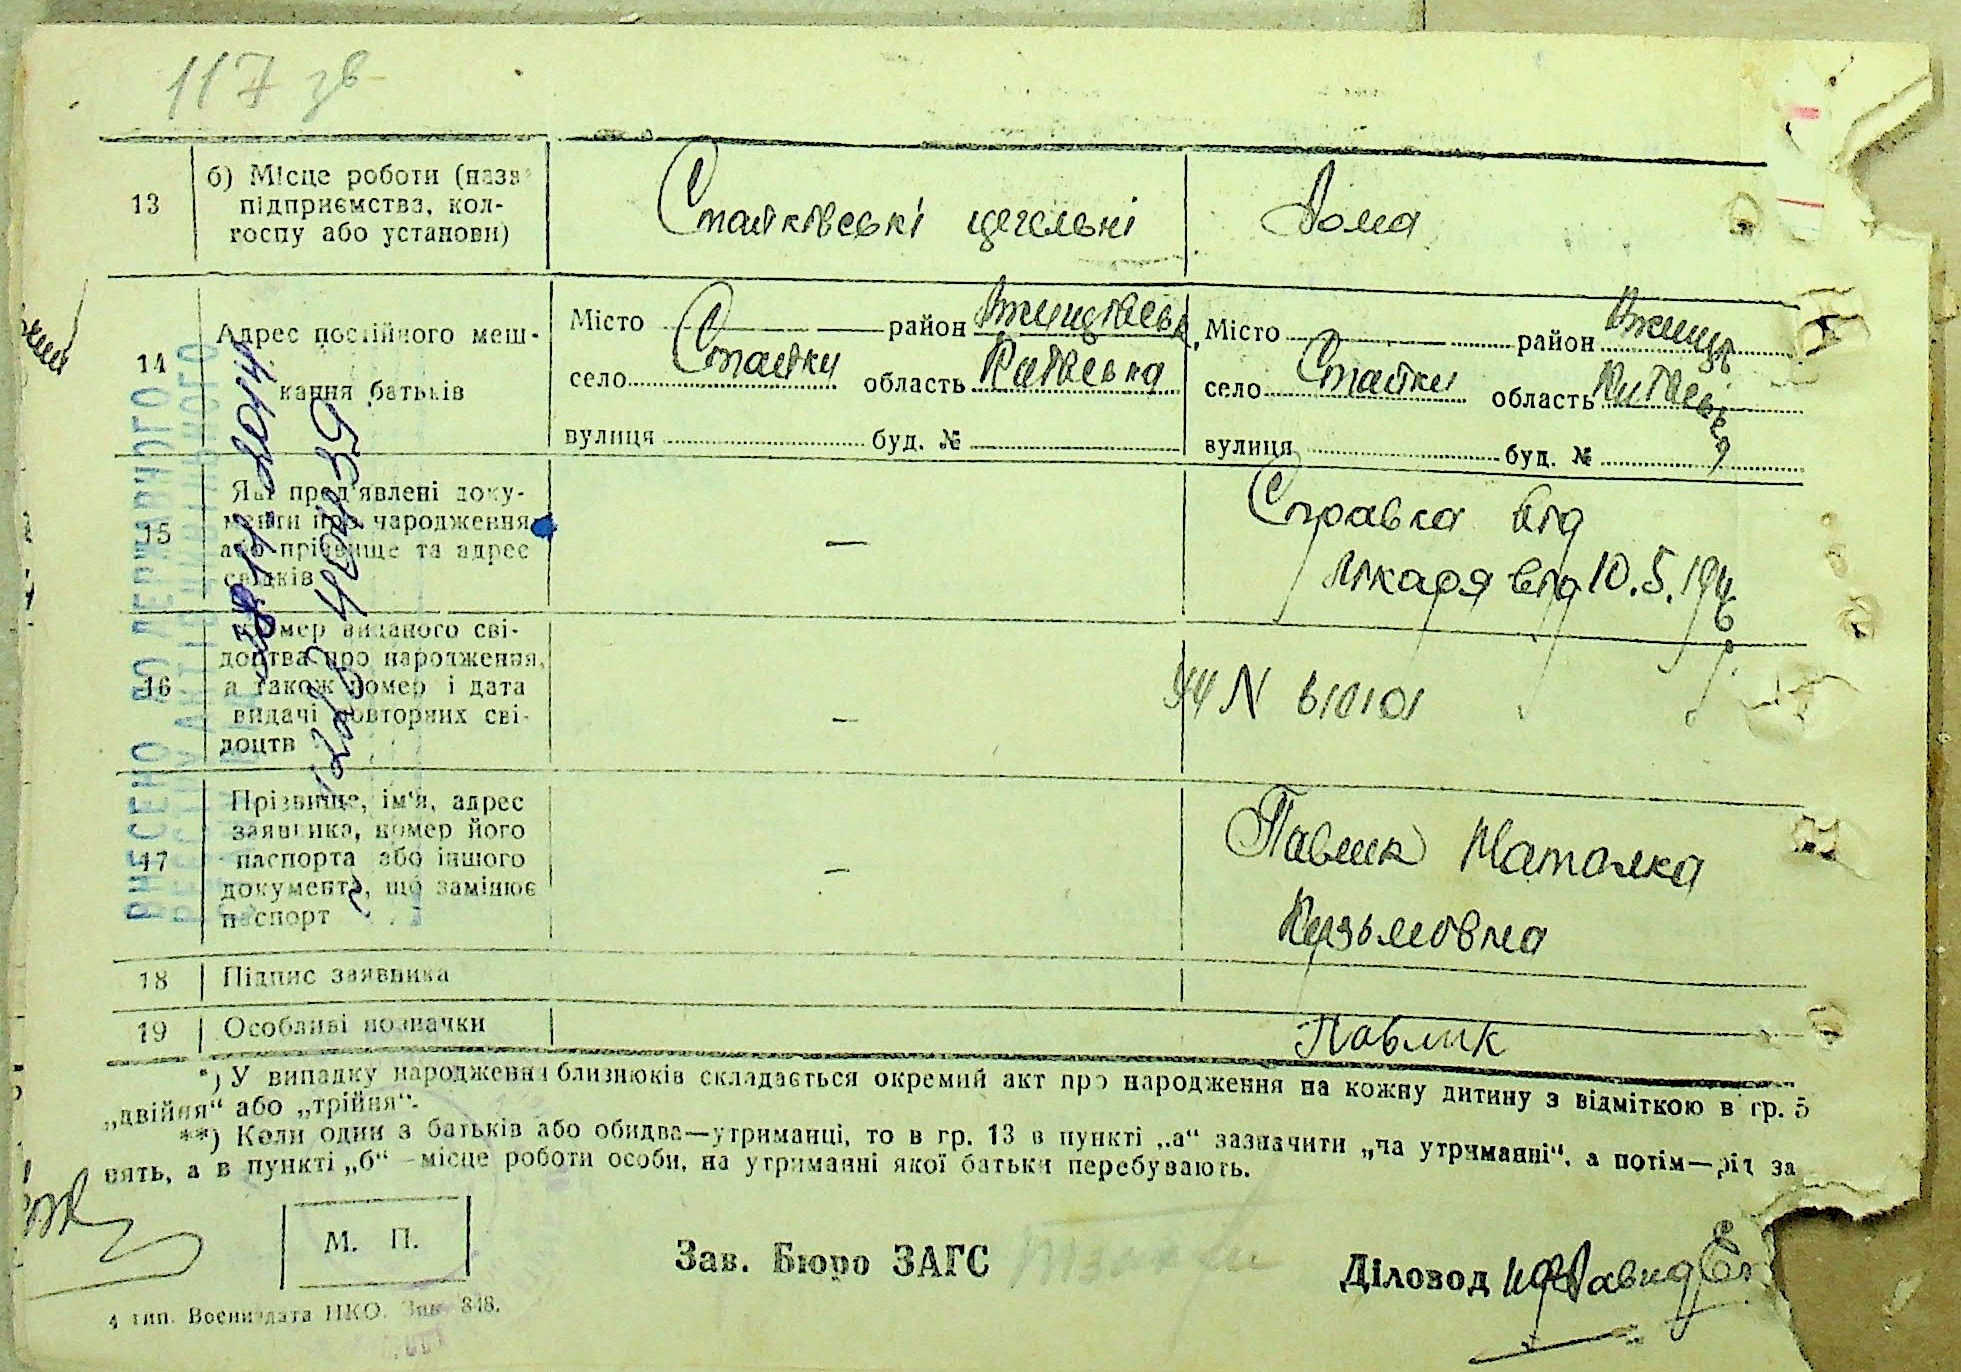 117 зв
13 б) Місце роботи (назва
підприємства, кол-
госпу або установи)
Стайківські цегельні
Дома
14 Адрес постійного меш-
кання батьків
Місто район Ржищівськ,
село Стайки область Київська
вулиця буд. №
Місто район Ржищів
село Стайки область Київська
вулиця буд. №
15 Які пред'явлені доку-
менти про народження
або прізвище та адрес
свідків
—
Справка від
лікаря від 10.5.1946
16 Номер виданого сві-
доцтва про народження,
а також номер і дата
видачі повторних сві-
доцтв
—
N 610101
17 Прізвище, ім'я, адрес
заявника, номер його
паспорта або іншого
документа, що замінює
паспорт
—
Павлик Наталка
Кузьмовна
18 Підпис заявника
19 Особливі позначки
Павлик
ВНЕСЕНО ДО ДЕРЖАВНОГО
*) У випадку народження близнюків складається окремий акт про народження на кожну дитину з відміткою в гр. 5
„двійня“ або „трійня“.
**) Коли один з батьків або обидва—утриманці, то в гр. 13 в пункті „а“ зазначити „на утриманні“, а потім—рід за
нять, а в пункті „б“ —місце роботи особи, на утриманні якої батьки перебувають.
М. П.
Зав. Бюро ЗАГС
Діловод
4 тип. Воениздата НКО. Зак. 348.